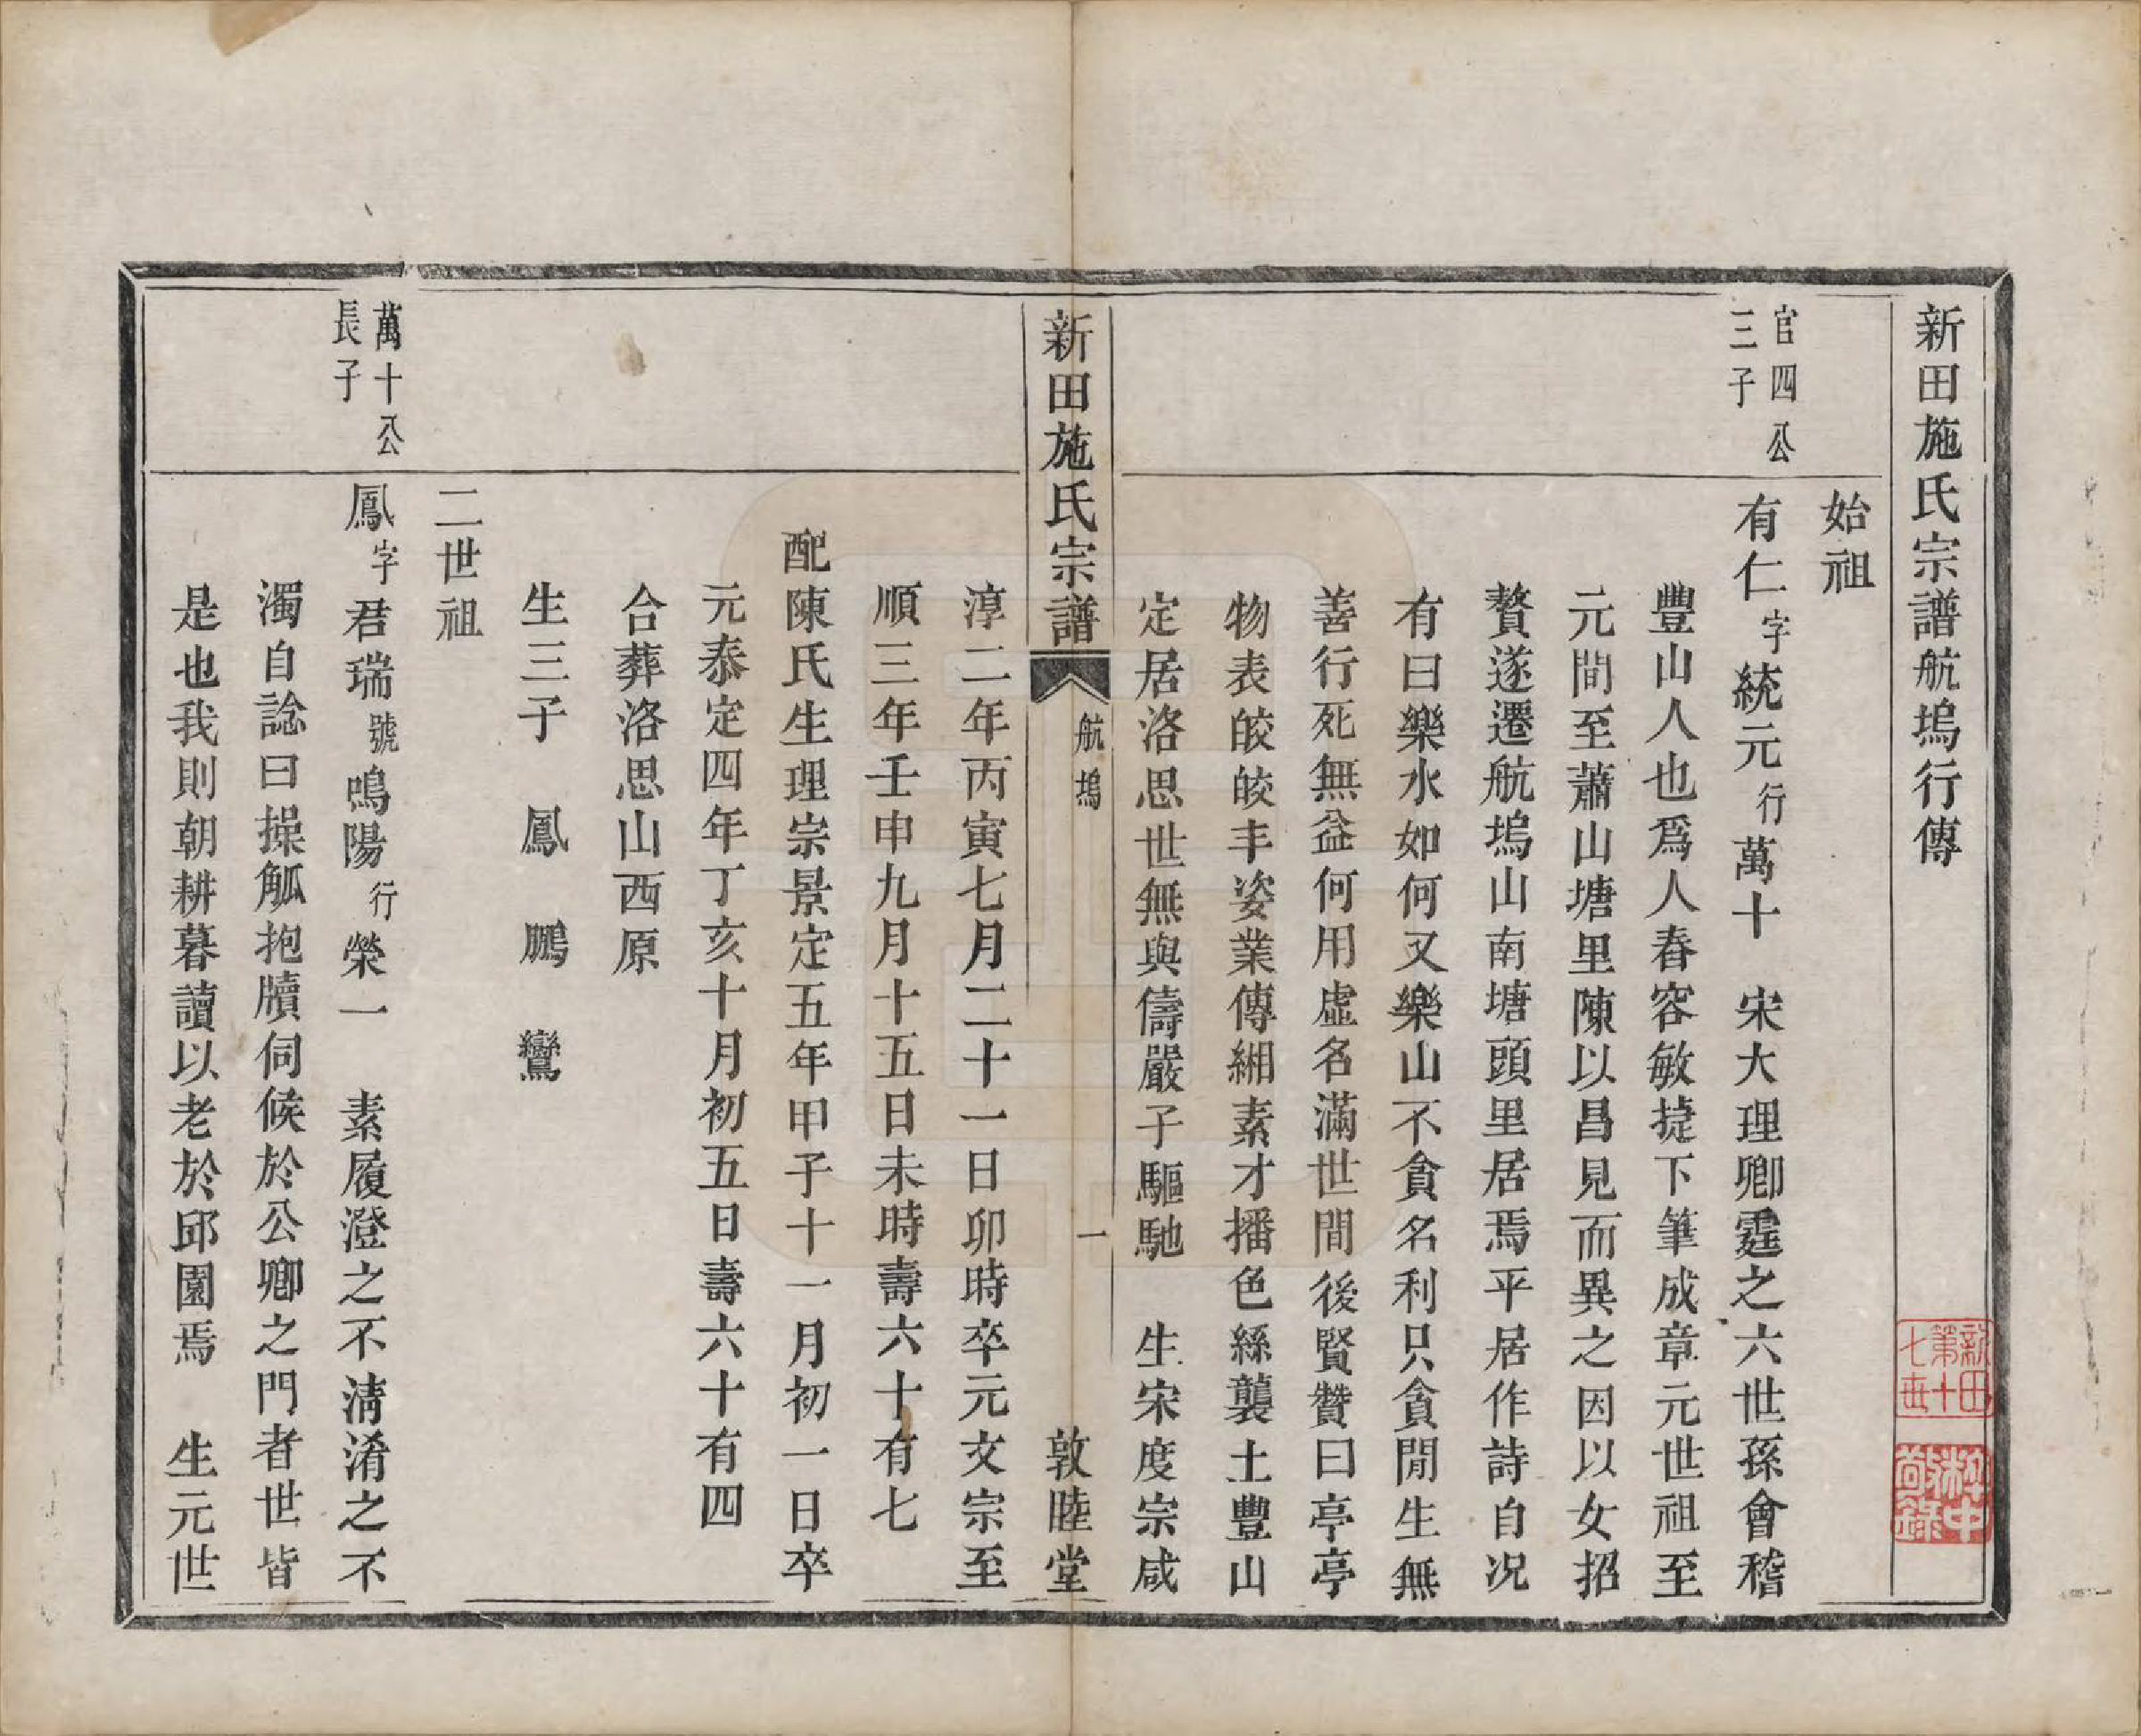 新田施氏宗譜航塢行傳
始祖
官四公
三子
有仁字統元行萬十　宋大理卿霆之六世孫會稽
豐山人也爲人春容敏捷下筆成章元世祖至
元間至蕭山塘里陳以昌見而異之因以女招
贅遂遷航塢山南塘頭里居焉平居作詩自况
有曰樂水如何又樂山不貪名利只貪閒生無
善行死無益何用虛名滿世間後賢贊曰亭亭
物表皎皎丰姿業傳緗素才播色絲襲土豐山
定居洛思世無與儔嚴子驅馳　生宋度宗咸
新田施氏宗譜
航塢
一
敦睦堂
淳二年丙寅七月二十一日卯時卒元文宗至
順三年壬申九月十五日未時壽六十有七
配陳氏生理宗景定五年甲子十一月初一日卒
元泰定四年丁亥十月初五日壽六十有四
合葬洛思山西原
生三子　鳳　鵬　鸞
二世祖
萬十公
長子
鳳字君瑞號鳴陽行榮一　素履澄之不淸淆之不
濁自諗曰操觚抱牘伺候於公卿之門者世皆
是也我則朝耕暮讀以老於邱園焉　生元世
新田
第十
七世
梓中
尙錄